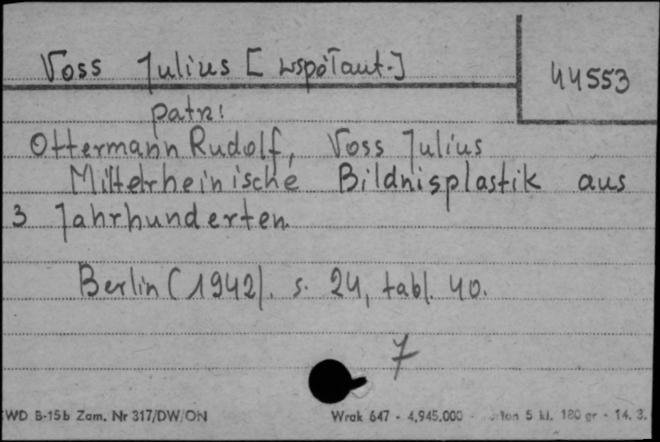 Voss Julius [współaut.]
44553
patrz:
Ottermann Rudolf, Voss Julius
Mittelrheinische Bildnisplastik aus
3 Jahrhunderten.
Berlin (1942). s. 24, tabl. 40.
7
WD B-15b Zam. Nr 317/DW/ON
Wrak 647 - 4,945.000 - 5 kl. 180 gr - 14. 3.